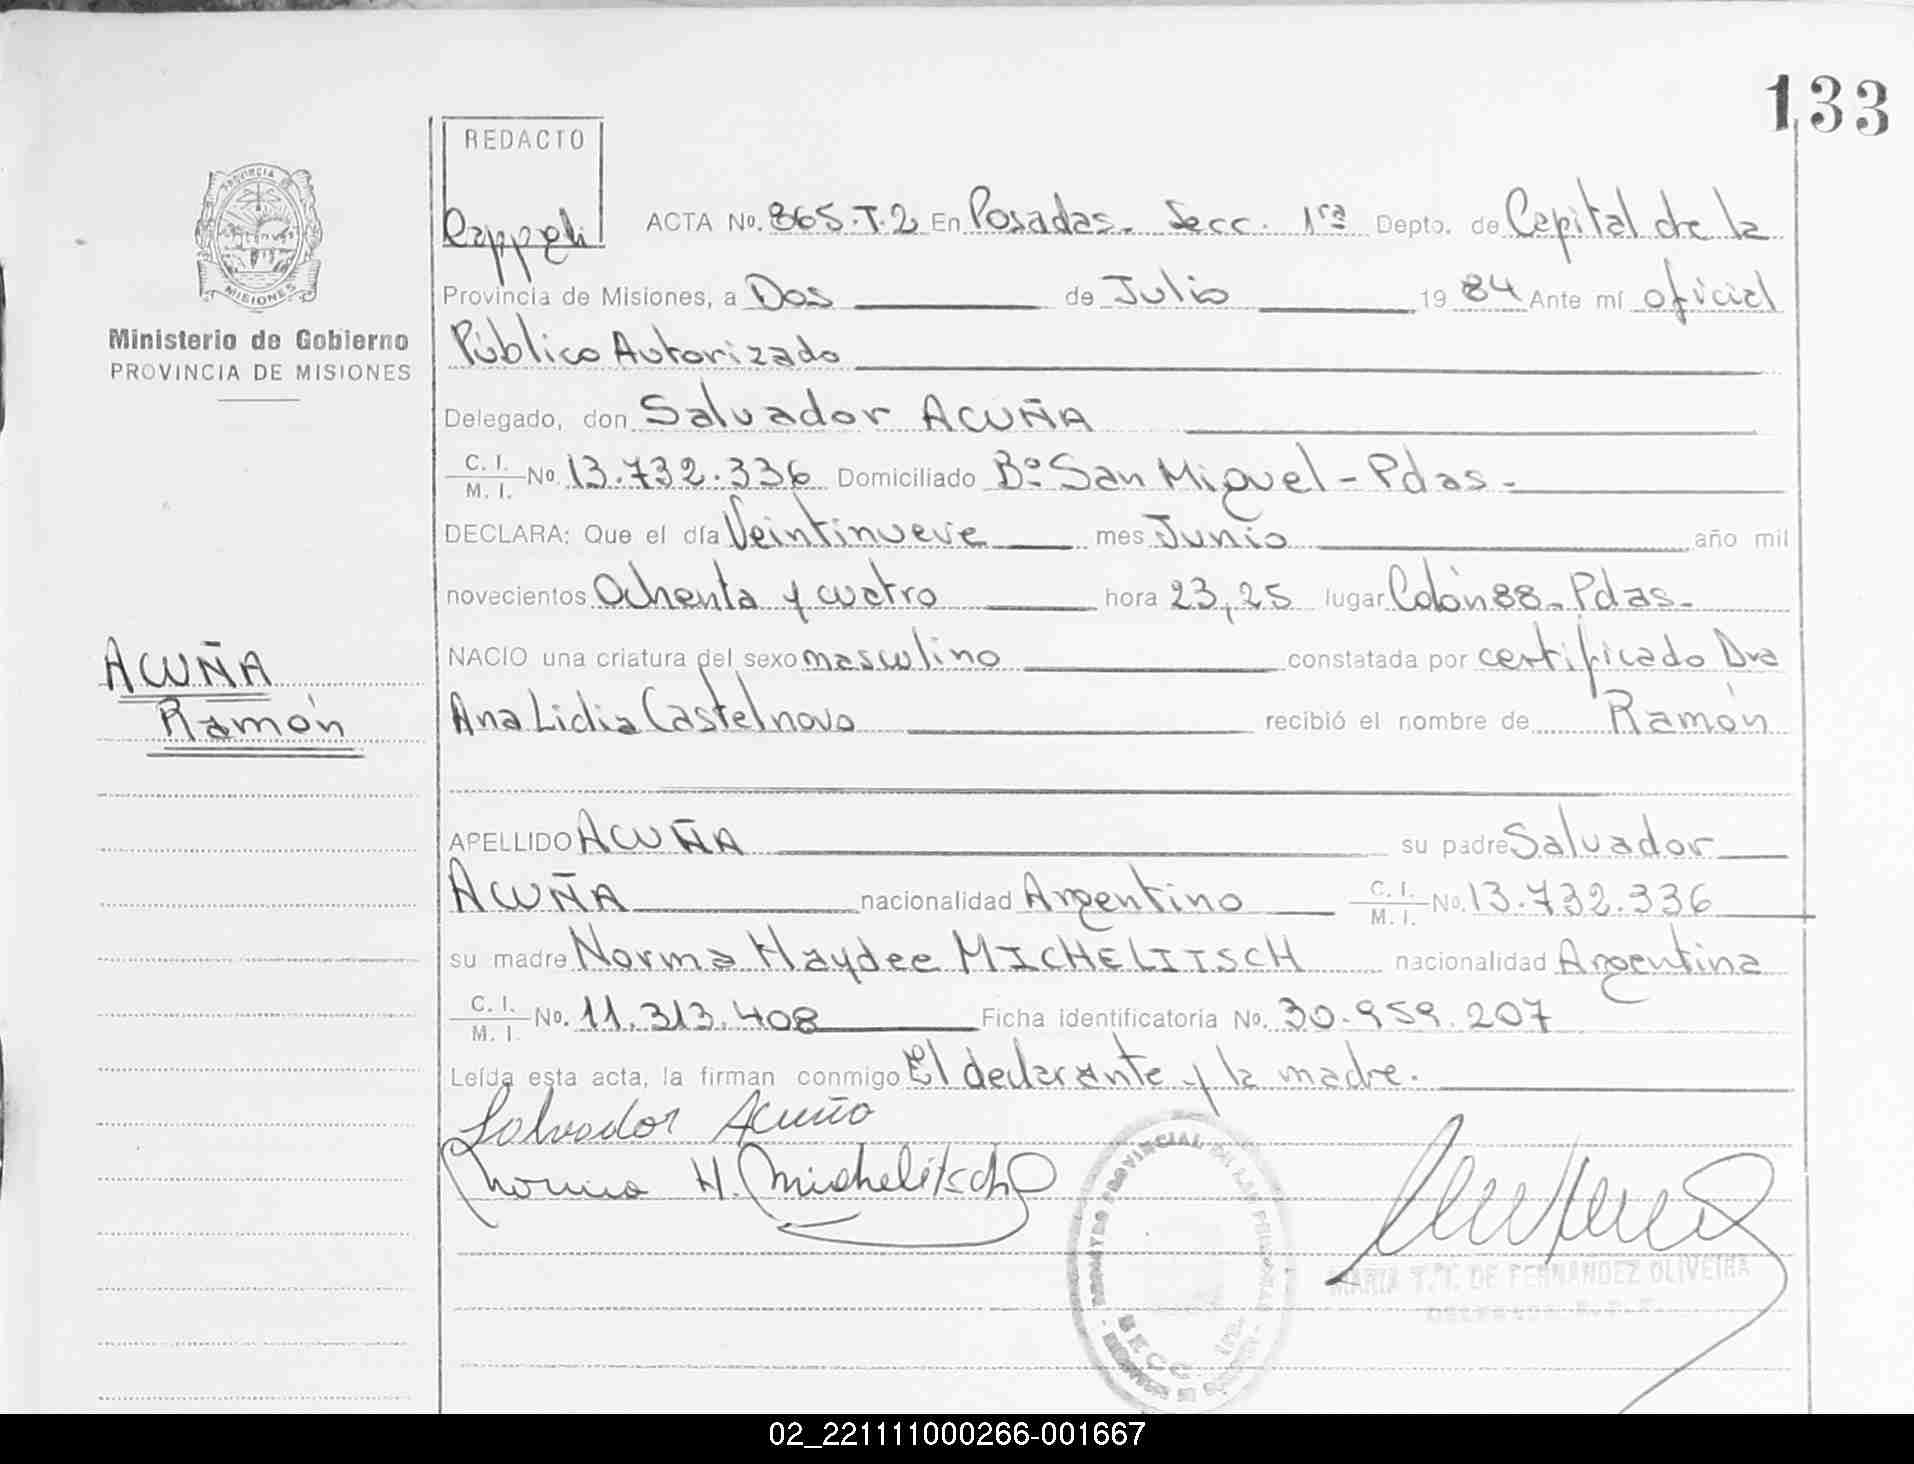 133
REDACTO
PROVINCIA DE
MISIONES
ACTA No. 865.T.2 En Posadas. Secc. 1ra Depto. de Capital de la
Provincia de Misiones, a Dos de Julio 1984 Ante mí oficial
Ministerio de Gobierno
PROVINCIA DE MISIONES
Público Autorizado
Delegado, don Salvador ACUÑA
C. I. M. I. No 13.732.336 Domiciliado Bº San Miguel - Pdas.
DECLARA: Que el día Veintinueve mes Junio año mil
novecientos Ochenta y cuatro hora 23,25 lugar Colón 88. Pdas.
ACUÑA
Ramón
NACIO una criatura del sexo masculino constatada por certificado Dra
Ana Lidia Castelnovo recibió el nombre de Ramón
APELLIDO ACUÑA su padre Salvador
ACUÑA nacionalidad Argentino C. I. M. I. No. 13.732.336
su madre Norma Haydee MICHELITSCH nacionalidad Argentina
C. I. M. I. No. 11.313.408 Ficha identificatoria No. 30.959.207
Leída esta acta, la firman conmigo El declarante y la madre.
Salvador Acuña
Norma H. Michelitsch
REGISTRO PROVINCIAL DE LAS PERSONAS
SECC. 1ra.
MARIA T. T. DE FERNANDEZ OLIVEIRA
02_221111000266-001667